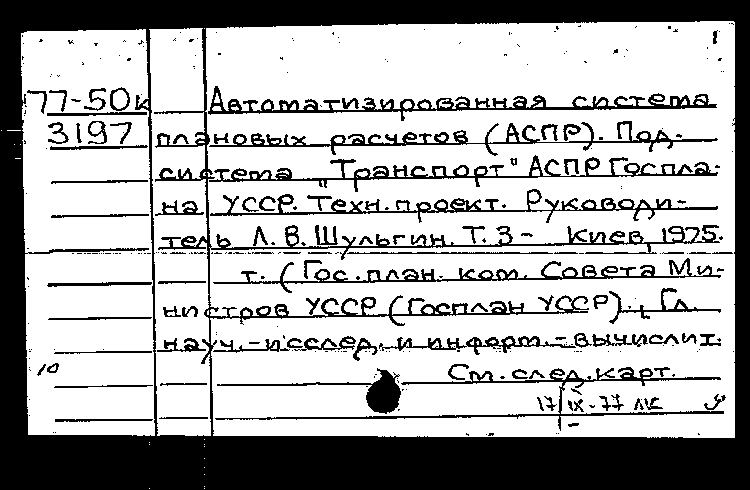 77-50к Автоматизированная система
3197 плановых расчетов (АСПР). Под-
система „Транспорт" АСПР Госпла-
на УССР. Техн. проект. Руководи-
тель Л. В. Шульгин. Т. 3- Киев, 1975.
т. (Гос. план. ком. Совета Ми-
нистров УССР (Госплан УССР). Гл.
науч.-исслед. и информ.-вычислит.
10 См. след. карт.
17/IX-77